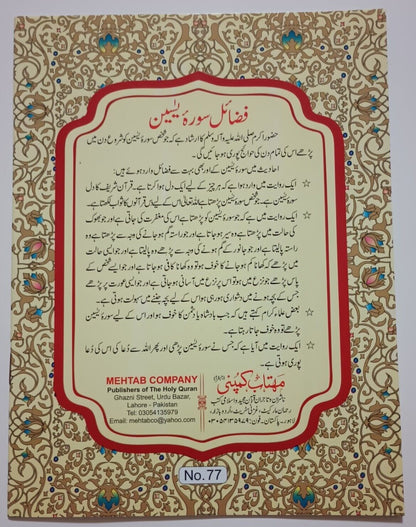 فضائل سورۂ یٰسین
حضور اکرم صلی اللہ علیہ وآلہ وسلم کا ارشاد ہے کہ جو شخص سورۂ یٰسین کو شروع دن میں
پڑھے اس کی تمام دن کی حوائج پوری ہو جائیں گی۔
احادیث میں سورۂ یٰسین کے اور بھی بہت سے فضائل وارد ہوئے ہیں:
☆ ایک روایت میں وارد ہوا ہے کہ ہر چیز کے لیے ایک دل ہوا کرتا ہے۔ قرآن شریف کا دل
سورۂ یٰسین ہے۔ جو شخص سورۂ یٰسین پڑھتا ہے اللہ تعالیٰ اس کے لیے دس قرآنوں کا ثواب لکھتا ہے۔
☆ ایک روایت میں ہے کہ جو سورۂ یٰسین کو پڑھتا ہے اس کی مغفرت کی جاتی ہے اور جو بھوک
کی حالت میں پڑھتا ہے وہ سیر ہو جاتا ہے اور جو راستہ گم ہو جانے کی وجہ سے پڑھتا ہے وہ
راستہ پالیتا ہے اور جو جانور کے گم ہو جانے کی وجہ سے پڑھے وہ پالیتا ہے اور جو ایسی حالت
میں پڑھے کہ کھانا کم ہو جانے کا خوف ہو تو وہ کھانا کافی ہو جاتا ہے اور جو ایسے شخص کے
پاس پڑھے جو نزع میں ہو تو اس پر نزع میں آسانی ہو جاتی ہے اور جو ایسی عورت پر پڑھے
جس کے بچہ ہونے میں دشواری ہو رہی ہو اس کے لیے بچہ جننے میں سہولت ہوتی ہے۔
☆ بعض علماء کرام کہتے ہیں کہ جب بادشاہ یا دشمن کا خوف ہو اور اس کے لیے سورۂ یٰسین
پڑھے تو وہ خوف جاتا رہتا ہے۔
☆ ایک روایت میں آیا ہے کہ جس نے سورۂ یٰسین پڑھی اور پھر اللہ سے دُعا کی اس کی دُعا
پوری ہوتی ہے۔
MEHTAB COMPANY
Publishers of The Holy Quran
Ghazni Street, Urdu Bazar,
Lahore - Pakistan
Tel: 03054135979
Email: mehtabco@yahoo.com
مہتاب کمپنی
ناشران و تاجران قرآن مجید و اسلامی کتب
رحمان مارکیٹ، غزنی سٹریٹ، اردو بازار،
لاہور۔ پاکستان۔ فون: ۰۳۰۵۴۱۳۵۹۷۹
No.77